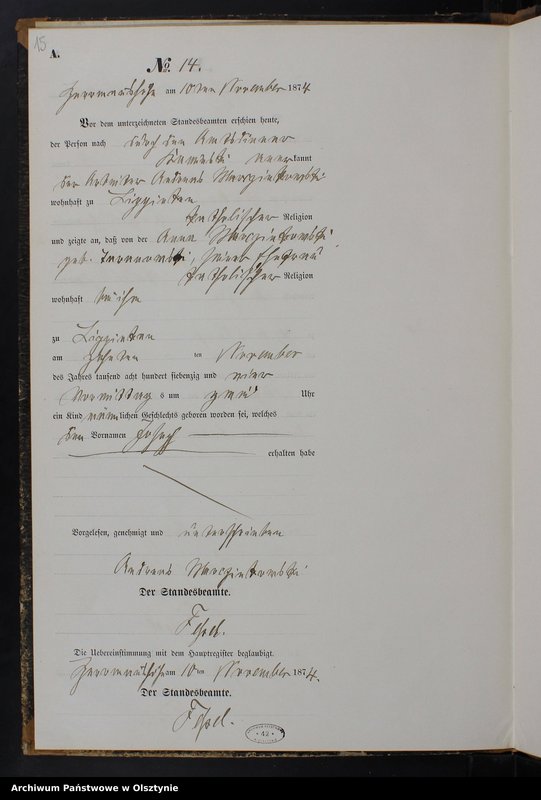 15
A.
No. 14.
am 10ten November 1874
Vor dem unterzeichneten Standesbeamten erschien heute,
der Person nach durch den Amtsdiener
anerkannt
der Arbeiter Andreas
wohnhaft zu
katholischer Religion
und zeigte an, daß von der Anna
geb. seiner Ehefrau
katholischer Religion
wohnhaft bei ihm
zu
am zehnten ten November
des Jahres tausend acht hundert siebenzig und vier
Vormittags um zwei Uhr
ein Kind männlichen Geschlechts geboren worden sei, welches
den Vornamen Joseph
erhalten habe
Vorgelesen, genehmigt und unterschrieben
Andreas
Der Standesbeamte.
Die Uebereinstimmung mit dem Hauptregister beglaubigt.
am 10ten November 1874.
Der Standesbeamte.
42
Archiwum Państwowe w Olsztynie